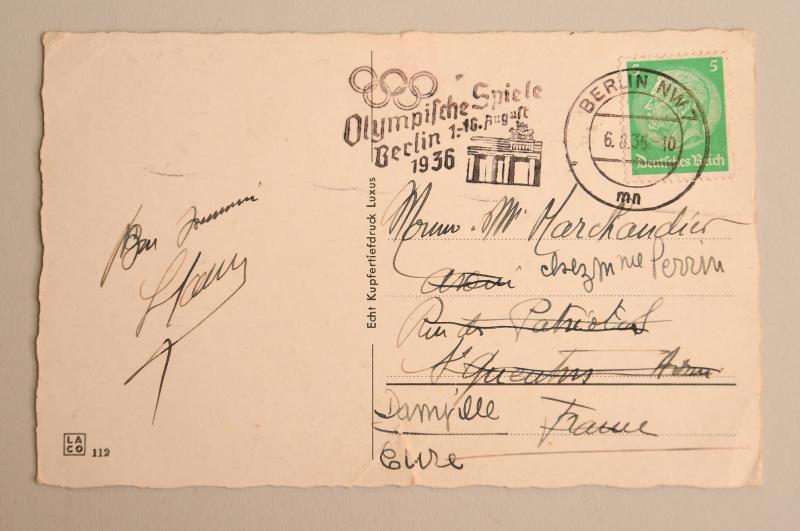 Olympische Spiele
Berlin 1.-16. August
1936
BERLIN NW 7
6.8.36.-10
mn
5 5
Deutsches Reich
Echt Kupfertiefdruck Luxus
Bon souvenir
Marchandier
chez Mme Perrin
Rue des Patriotes
St Quentin Aisne
Damville France
Eure
LA
CO 112